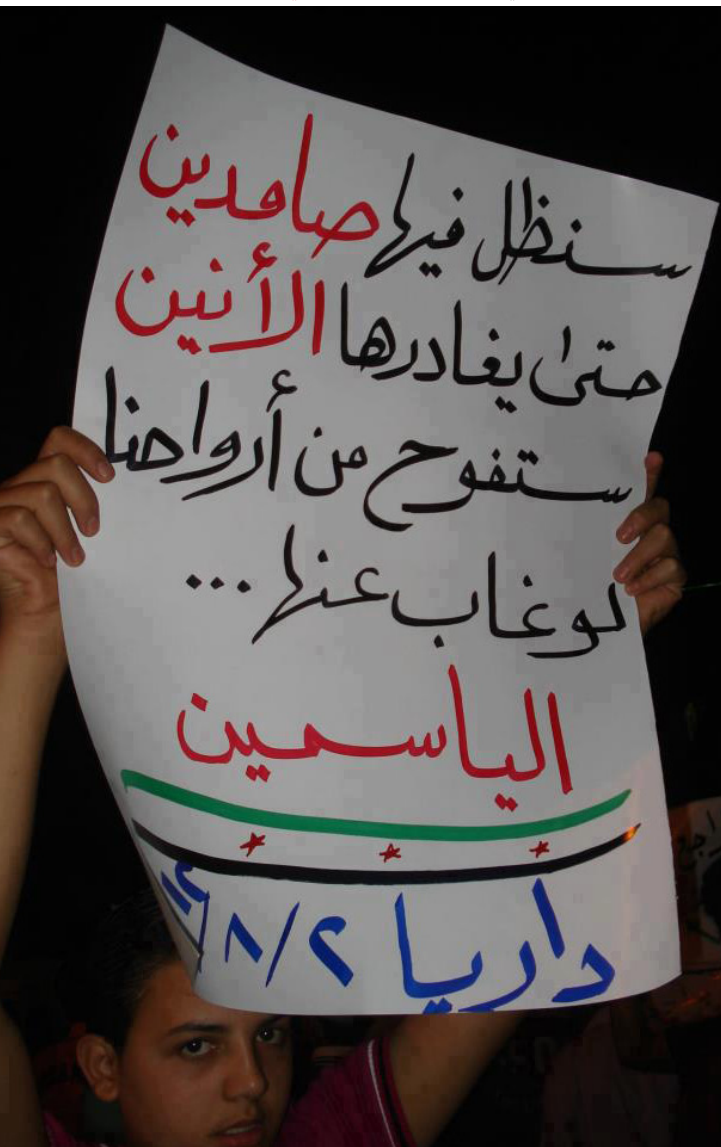 سنظل فيها صامدين
حتى يغادرها الأنين
ستفوح من أرواحنا
لو غاب عنها ...
الياسمين
داريا ٢/٨/١٢